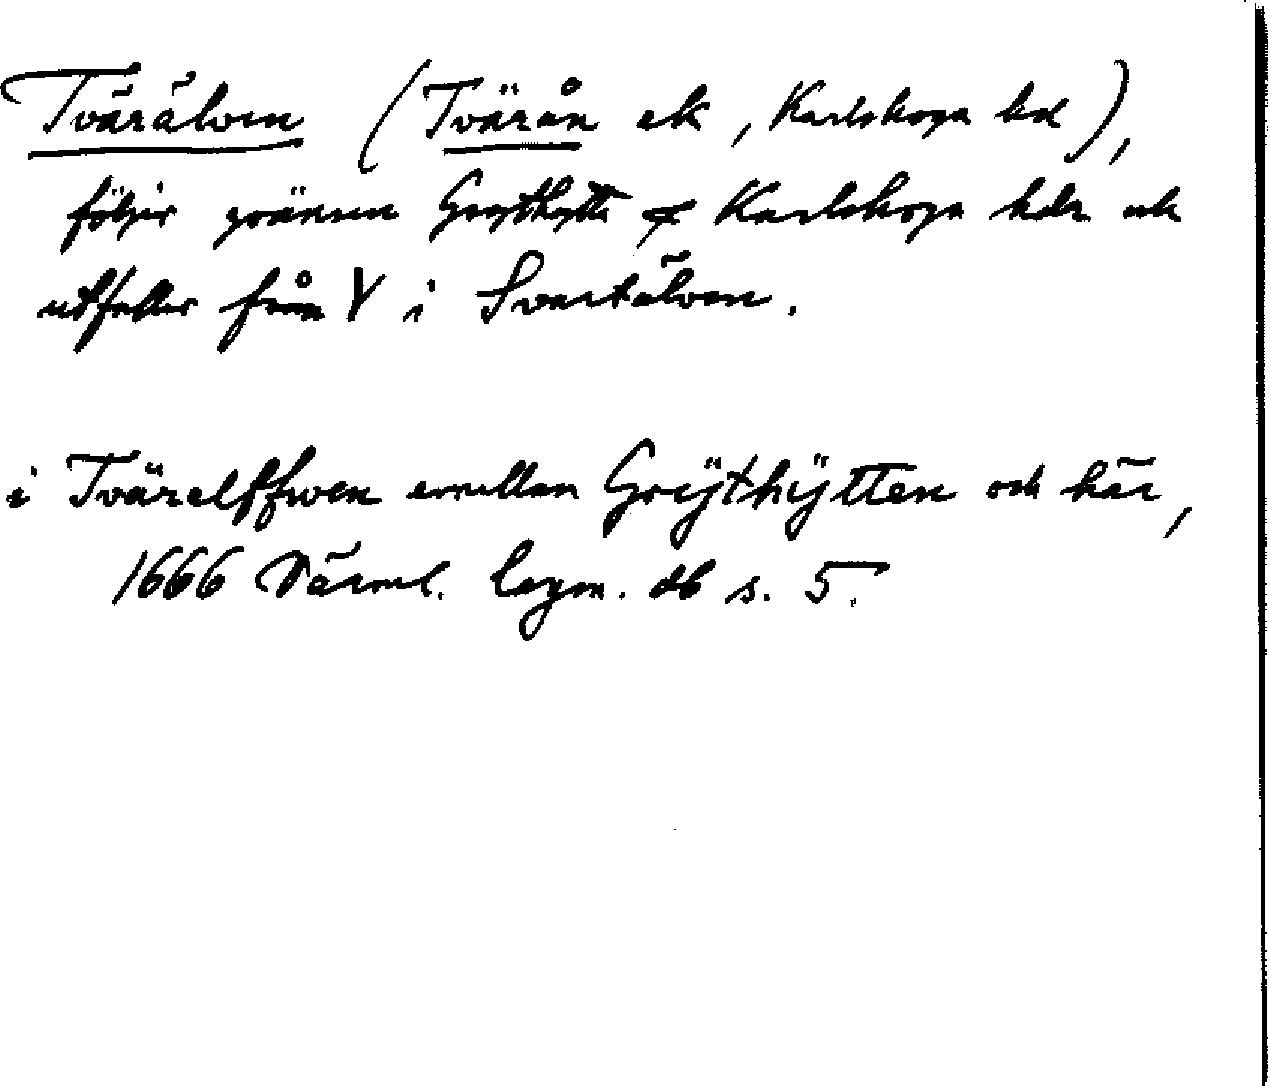 Tvärälven (Tvärån ek, Karlskoga hd),
följer gränsen Grythytte ɔ: Karlskoga hdr och
utfaller från V i Svartälven.
i Tväralffwen emellan Grÿthÿtten och här,
1666 Värml. lagm. db s. 5.